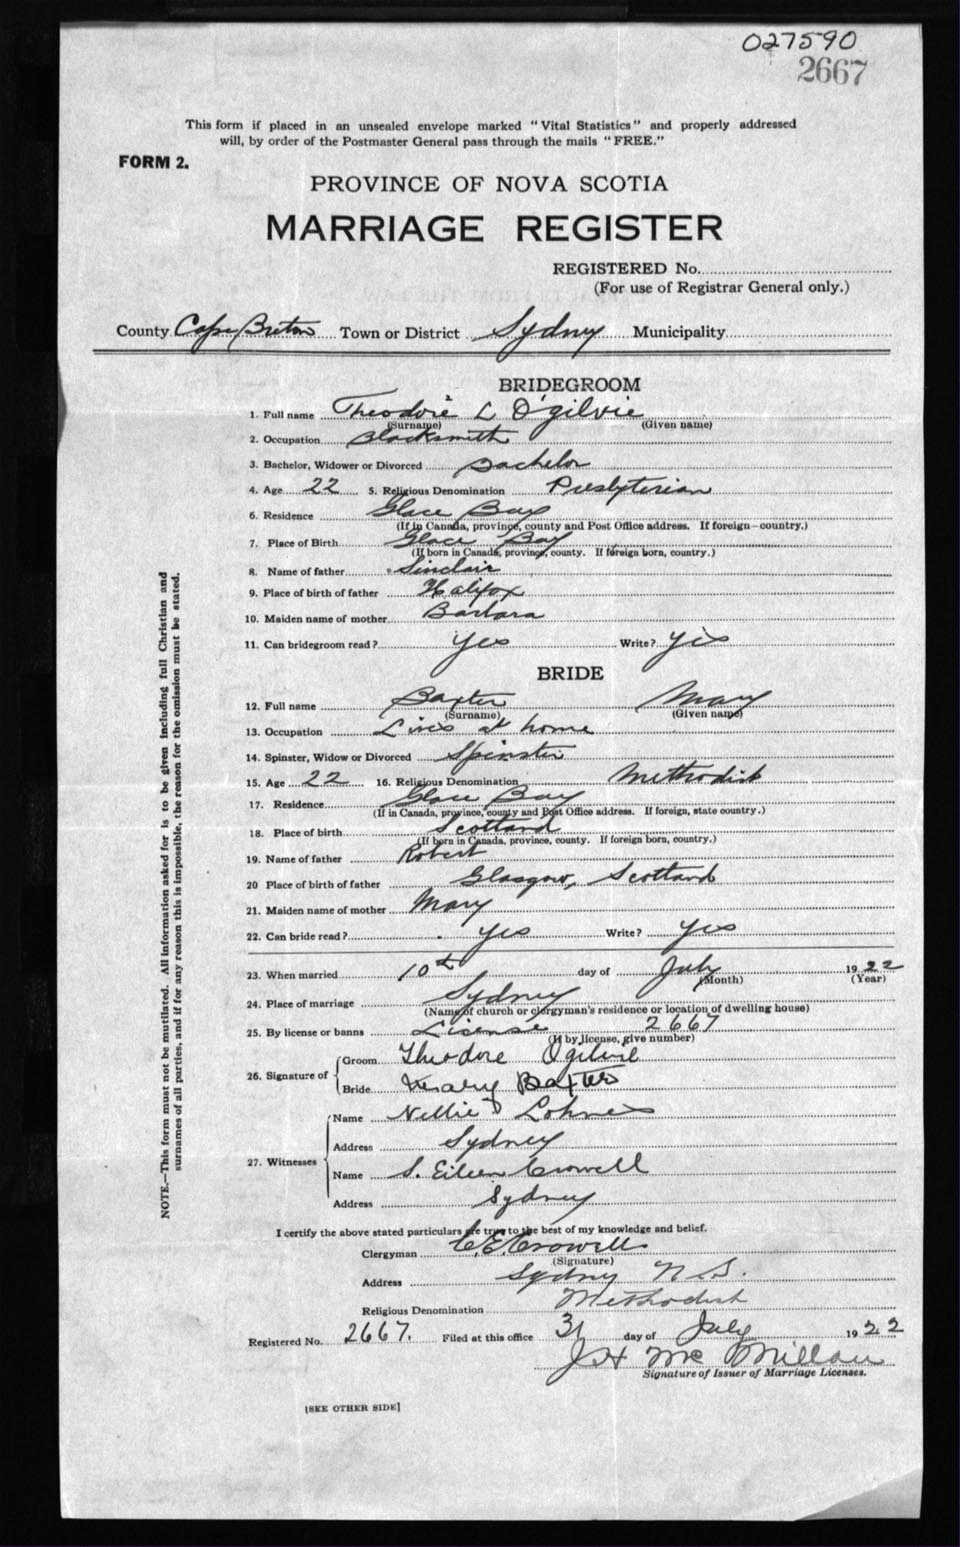 027590
2667
This form if placed in an unsealed envelope marked "Vital Statistics" and properly addressed
will, by order of the Postmaster General pass through the mails "FREE."
FORM 2.
PROVINCE OF NOVA SCOTIA
MARRIAGE REGISTER
REGISTERED No.
(For use of Registrar General only.)
County Cape Breton Town or District Sydney Municipality
BRIDEGROOM
1. Full name Theodore L O'gilvie
(Surname) (Given name)
2. Occupation Blacksmith
3. Bachelor, Widower or Divorced Bachelor
4. Age 22 5. Religious Denomination Presbyterian
6. Residence Glace Bay
(If in Canada, province, county and Post Office address. If foreign—country.)
7. Place of Birth Glace Bay
(If born in Canada, province, county. If foreign born, country.)
8. Name of father Sinclair
9. Place of birth of father Halifax
10. Maiden name of mother Barbara
11. Can bridegroom read? Yes Write? Yes
BRIDE
12. Full name Baxter Mary
(Surname) (Given name)
13. Occupation Lives at home
14. Spinster, Widow or Divorced Spinster
15. Age 22 16. Religious Denomination Methodist
17. Residence Glace Bay
(If in Canada, province, county and Post Office address. If foreign, state country.)
18. Place of birth Scotland
(If born in Canada, province, county. If foreign born, country.)
19. Name of father Robert
20 Place of birth of father Glasgow, Scotland
21. Maiden name of mother Mary
22. Can bride read? Yes Write? Yes
23. When married 10th day of July 1922
(Month) (Year)
24. Place of marriage Sydney
(Name of church or clergyman's residence or location of dwelling house)
25. By license or banns License 2667
(If by license, give number)
26. Signature of Groom Theodore Ogilvie
Bride Mary Baxter
27. Witnesses Name Nellie Lohnes
Address Sydney
Name S. Eileen Crowell
Address Sydney
I certify the above stated particulars are true to the best of my knowledge and belief.
Clergyman C.E. Crowell
(Signature)
Address Sydney N.S.
Religious Denomination Methodist
Registered No. 2667. Filed at this office 31 day of July 1922
J H McMillan
Signature of Issuer of Marriage Licenses.
[SEE OTHER SIDE]
NOTE.—This form must not be mutilated. All information asked for is to be given including full Christian and
surnames of all parties, and if for any reason this is impossible, the reason for the omission must be stated.